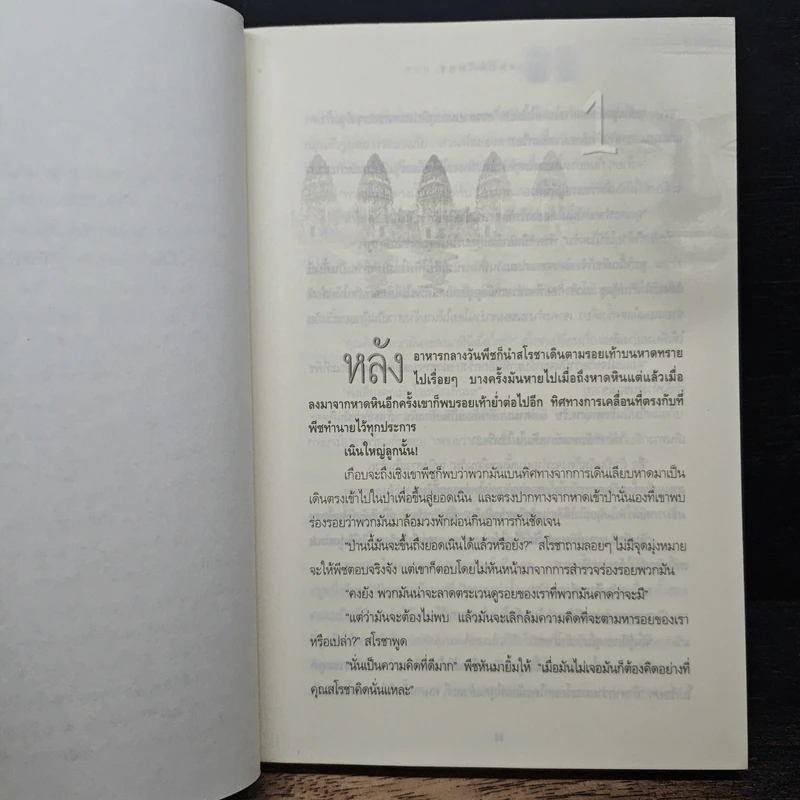 1
หลัง อาหารกลางวันพีชก็นำสโรชาเดินตามรอยเท้าบนหาดทราย
ไปเรื่อยๆ บางครั้งมันหายไปเมื่อถึงหาดหินแต่แล้วเมื่อ
ลงมาจากหาดหินอีกครั้งเขาก็พบรอยเท้าย่ำต่อไปอีก ทิศทางการเคลื่อนที่ตรงกับที่
พีชทำนายไว้ทุกประการ
เนินใหญ่ลูกนั้น!
เกือบจะถึงเชิงเขาพีชก็พบว่าพวกมันเบนทิศทางจากการเดินเลียบหาดมาเป็น
เดินตรงเข้าไปในป่าเพื่อขึ้นสู่ยอดเนิน และตรงปากทางจากหาดเข้าป่านั่นเองที่เขาพบ
ร่องรอยว่าพวกมันมาล้อมวงพักผ่อนกินอาหารกันชัดเจน
“ป่านนี้มันจะขึ้นถึงยอดเนินได้แล้วหรือยัง?” สโรชาถามลอยๆ ไม่มีจุดมุ่งหมาย
จะให้พีชตอบจริงจัง แต่เขาก็ตอบโดยไม่หันหน้ามาจากการสำรวจร่องรอยพวกมัน
“คงยัง พวกมันน่าจะลาดตระเวนดูรอยของเราที่พวกมันคาดว่าจะมี”
“แต่ว่ามันจะต้องไม่พบ แล้วมันจะเลิกล้มความคิดที่จะตามหารอยของเรา
หรือเปล่า?” สโรชาพูด
“นั่นเป็นความคิดที่ดีมาก” พีชหันมายิ้มให้ “เมื่อมันไม่เจอมันก็ต้องคิดอย่างที่
คุณสโรชาคิดนั่นแหละ”